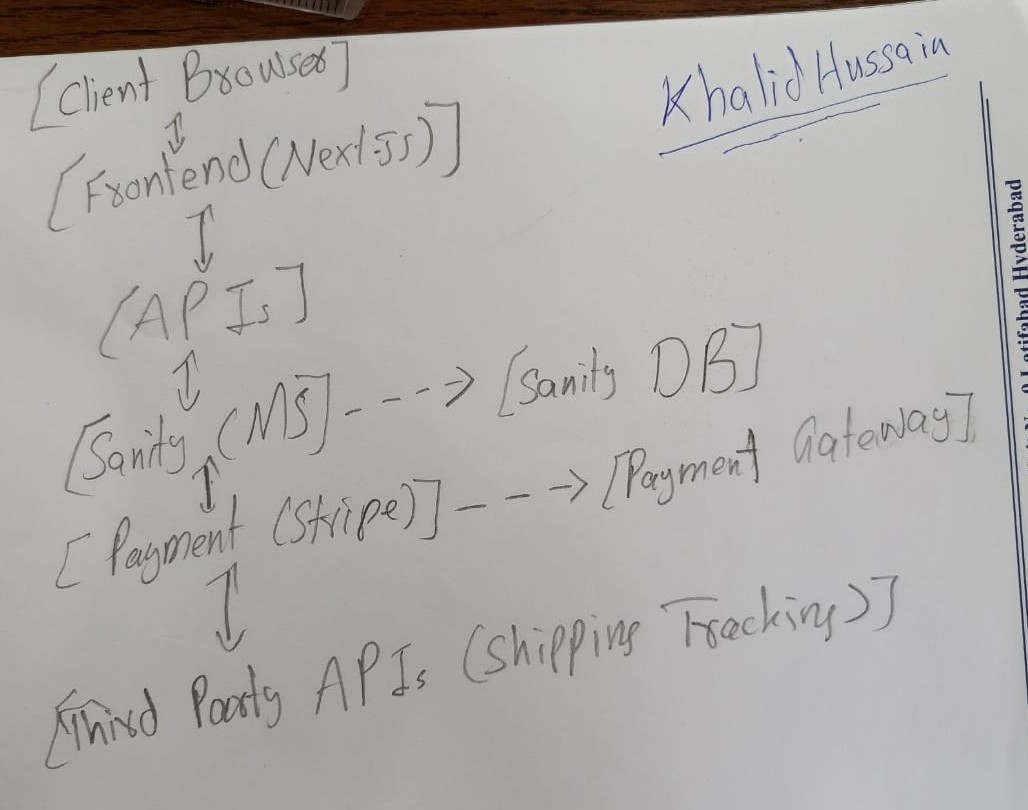 [Client Browser]
Khalid Hussain
[Frontend (Next JS)]
[APIs]
[Sanity CMS] ----> [Sanity DB]
[Payment (Stripe)] ---> [Payment Gateway]
[Third Party APIs (Shipping Tracking)]
Latifabad Hyderabad